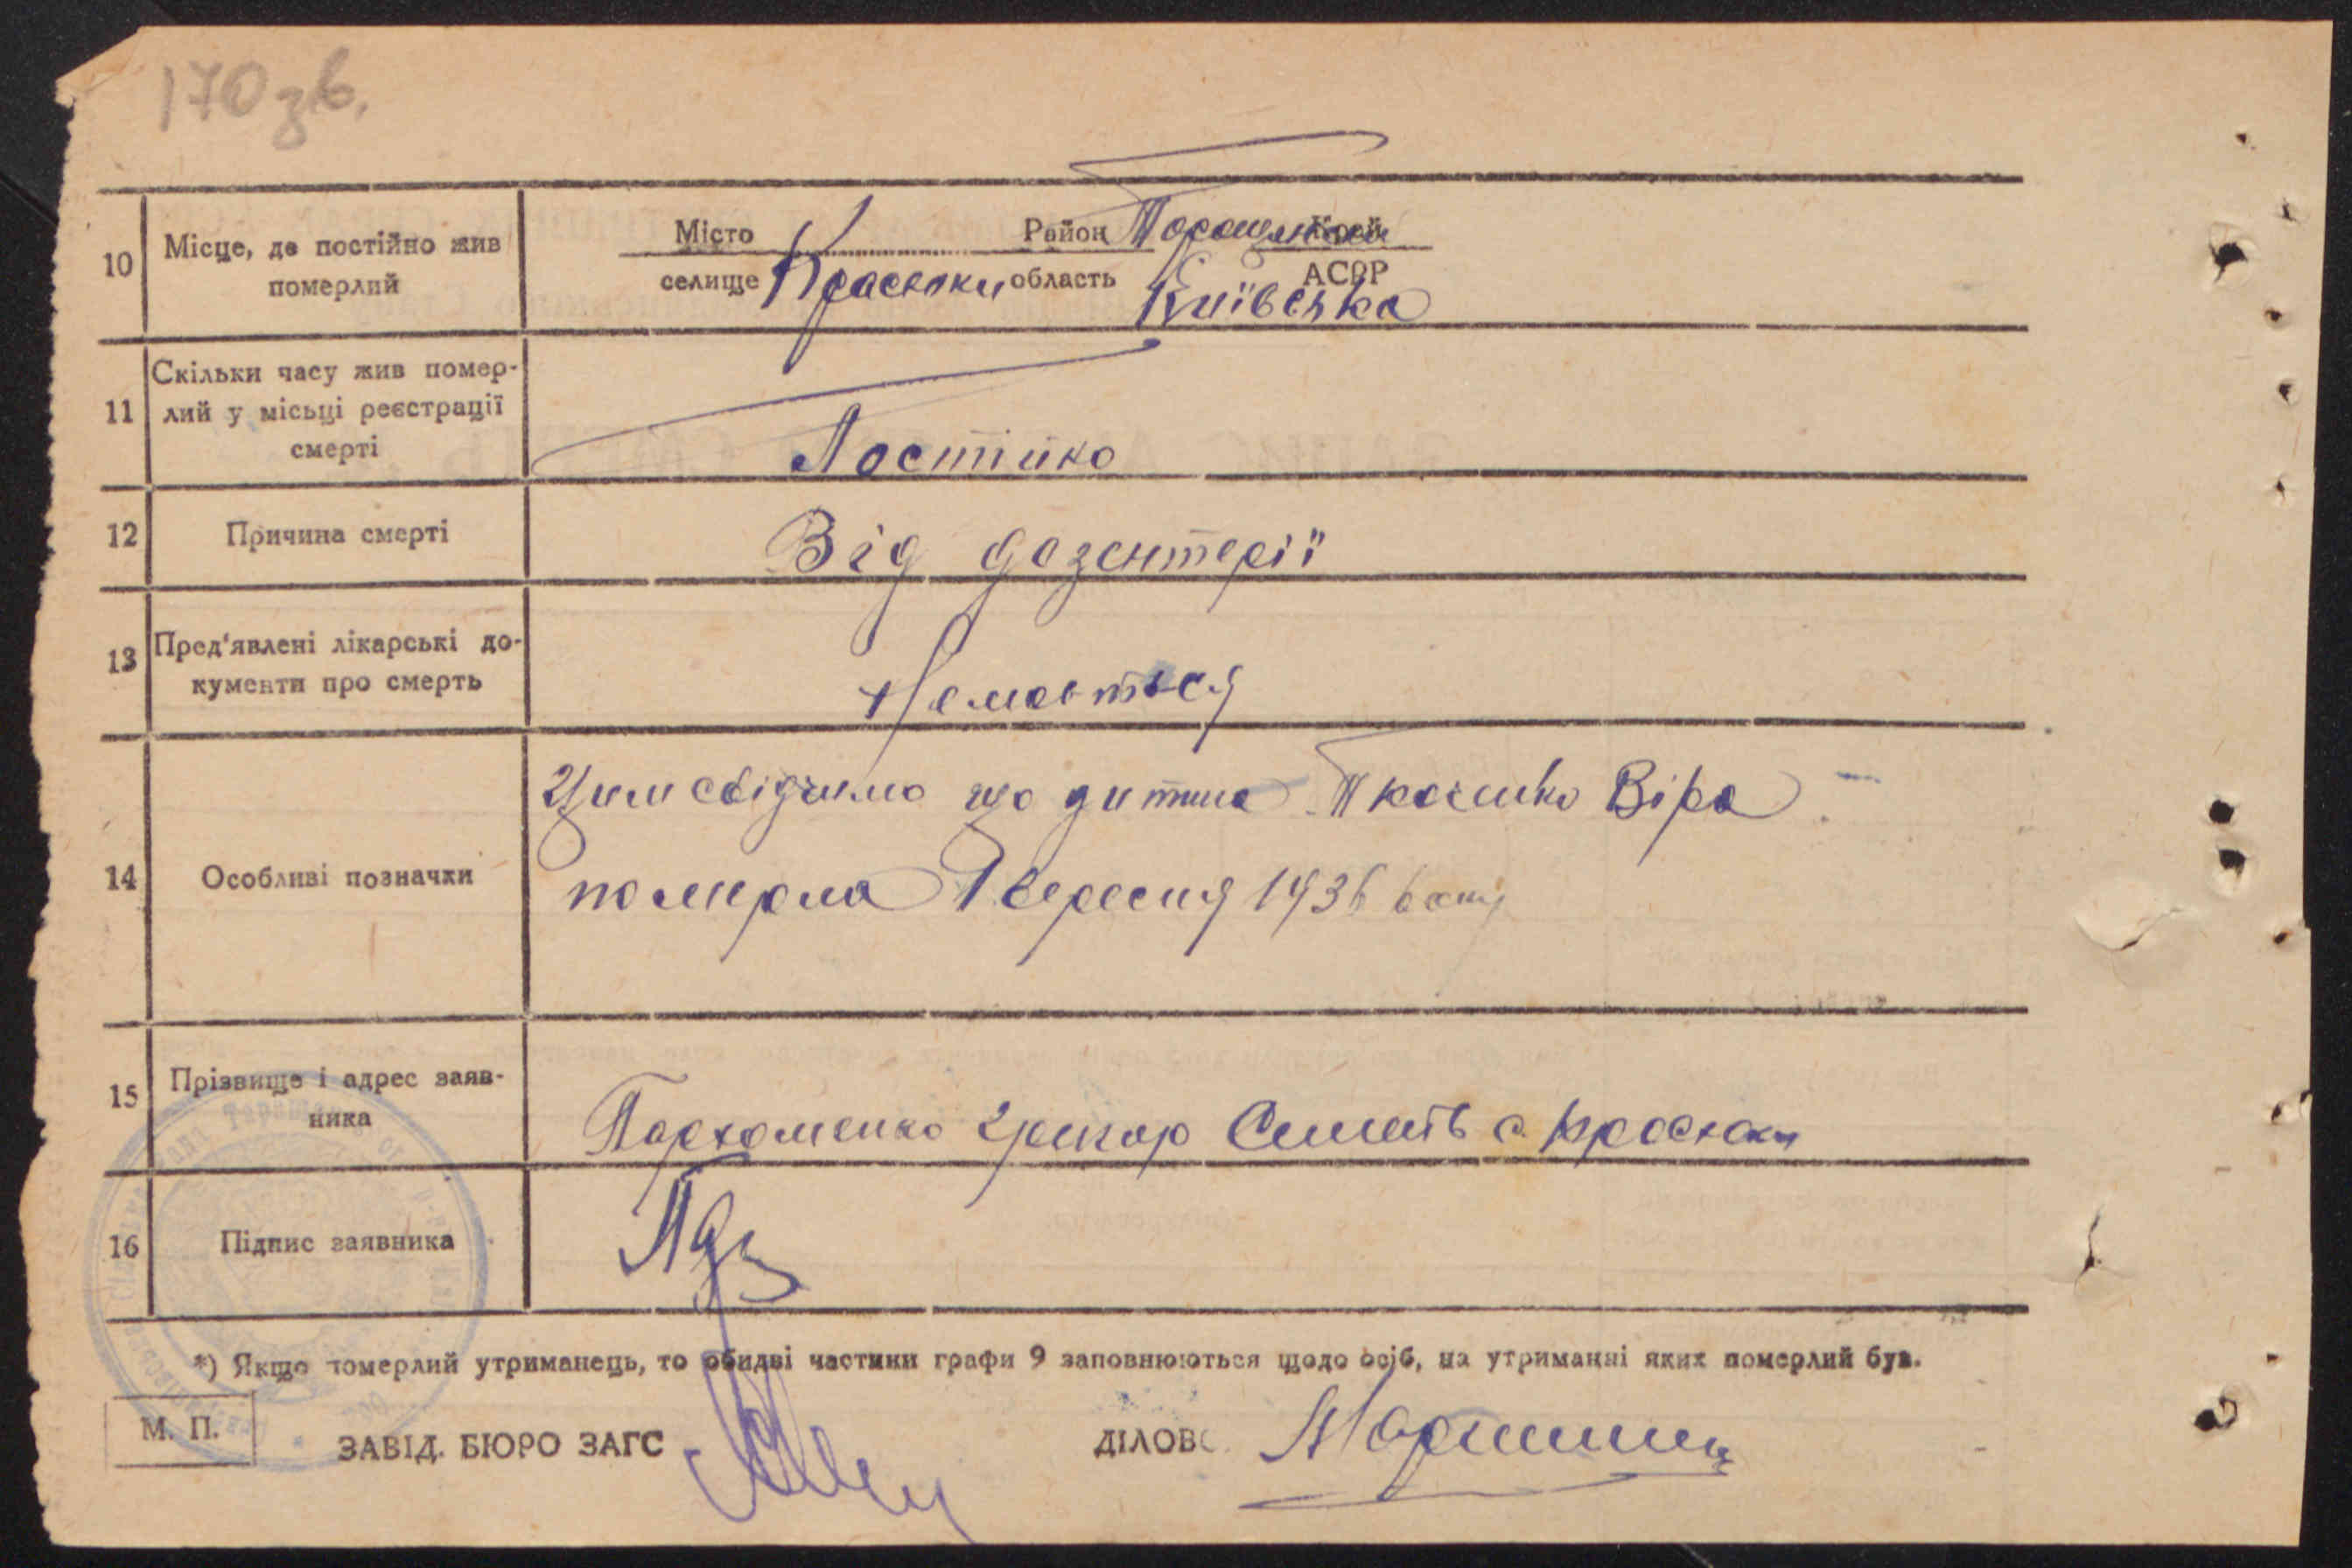 170 зв.
10 Місце, де постійно жив померлий
Місто Район Торощанськи Край
селище Красюки область Київська АСРР
11 Скільки часу жив помер-
лий у місьці реєстрації
смерті
Постійно
12 Причина смерті
Від дазентерії
13 Пред'явлені лікарські до-
кументи про смерть
Немаеться
14 Особливі позначки
Цим свідчимо що дитина Ткаченко Віра
померла вересня 1936
15 Прізвище і адрес заяв-
ника
Пархоменко Грегор с. Красюки
16 Підпис заявника
*) Якщо померлий утриманець, то обидві частини графи 9 заповнюються щодо осіб, на утриманні яких померлий був.
М. П.
ЗАВІД. БЮРО ЗАГС
ДІЛОВ